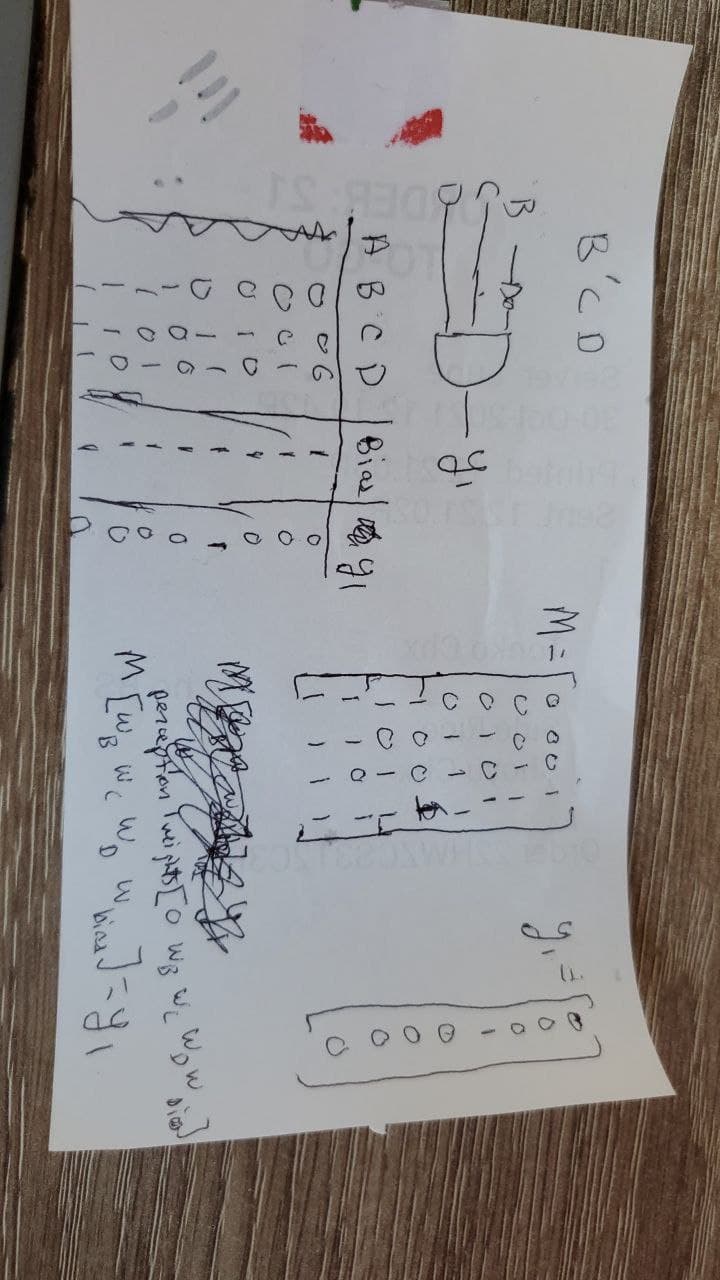 B'CD
B
C
D
y₁
A B C D Bias y₁
0 0 0 1 0
0 0 1 1 0
0 1 0 1 0
0 1 1 1 1
1 0 0 1 0
1 0 1 1 0
1 1 0 1 0
1 1 1 1 0
M =
0 0 0 1
0 0 1 1
0 1 0 1
0 1 1 1
1 0 0
1 0 1 1
1 1 0 1
1 1 1 1
y₁ =
0
0
0
1
0
0
0
0
perception weights [0 w_B w_C w_D w_bias]
M [w_B w_C w_D w_bias] = y₁